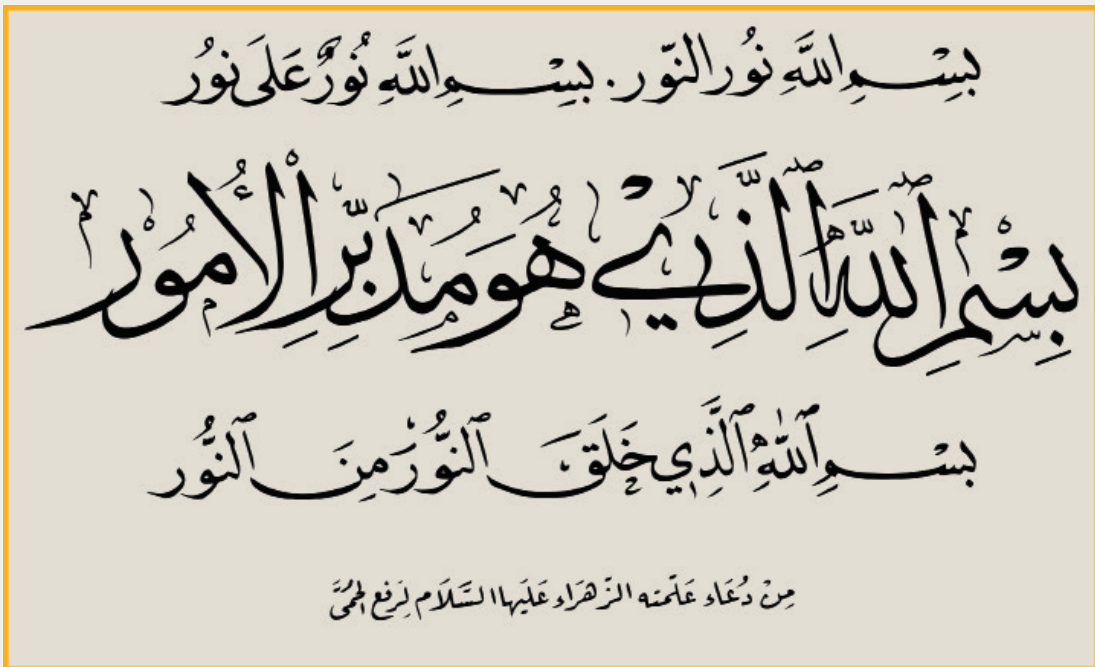 بِسْمِ اللَّهِ نُورِ النّور. بِسْمِ اللَّهِ نُورٌ عَلَى نُور
بِسْمِ ٱللَّهِ الَّذِي هُوَ مُدَبِّرُ الْأُمُور
بِسْمِ ٱللّٰهِ ٱلَّذِي خَلَقَ ٱلنُّورَ مِنَ ٱلنُّور
مِنْ دُعَاء عَلّمته الزَهرَاء عَلَيها السَّلَام لِرَفع الحُمَّىٰ